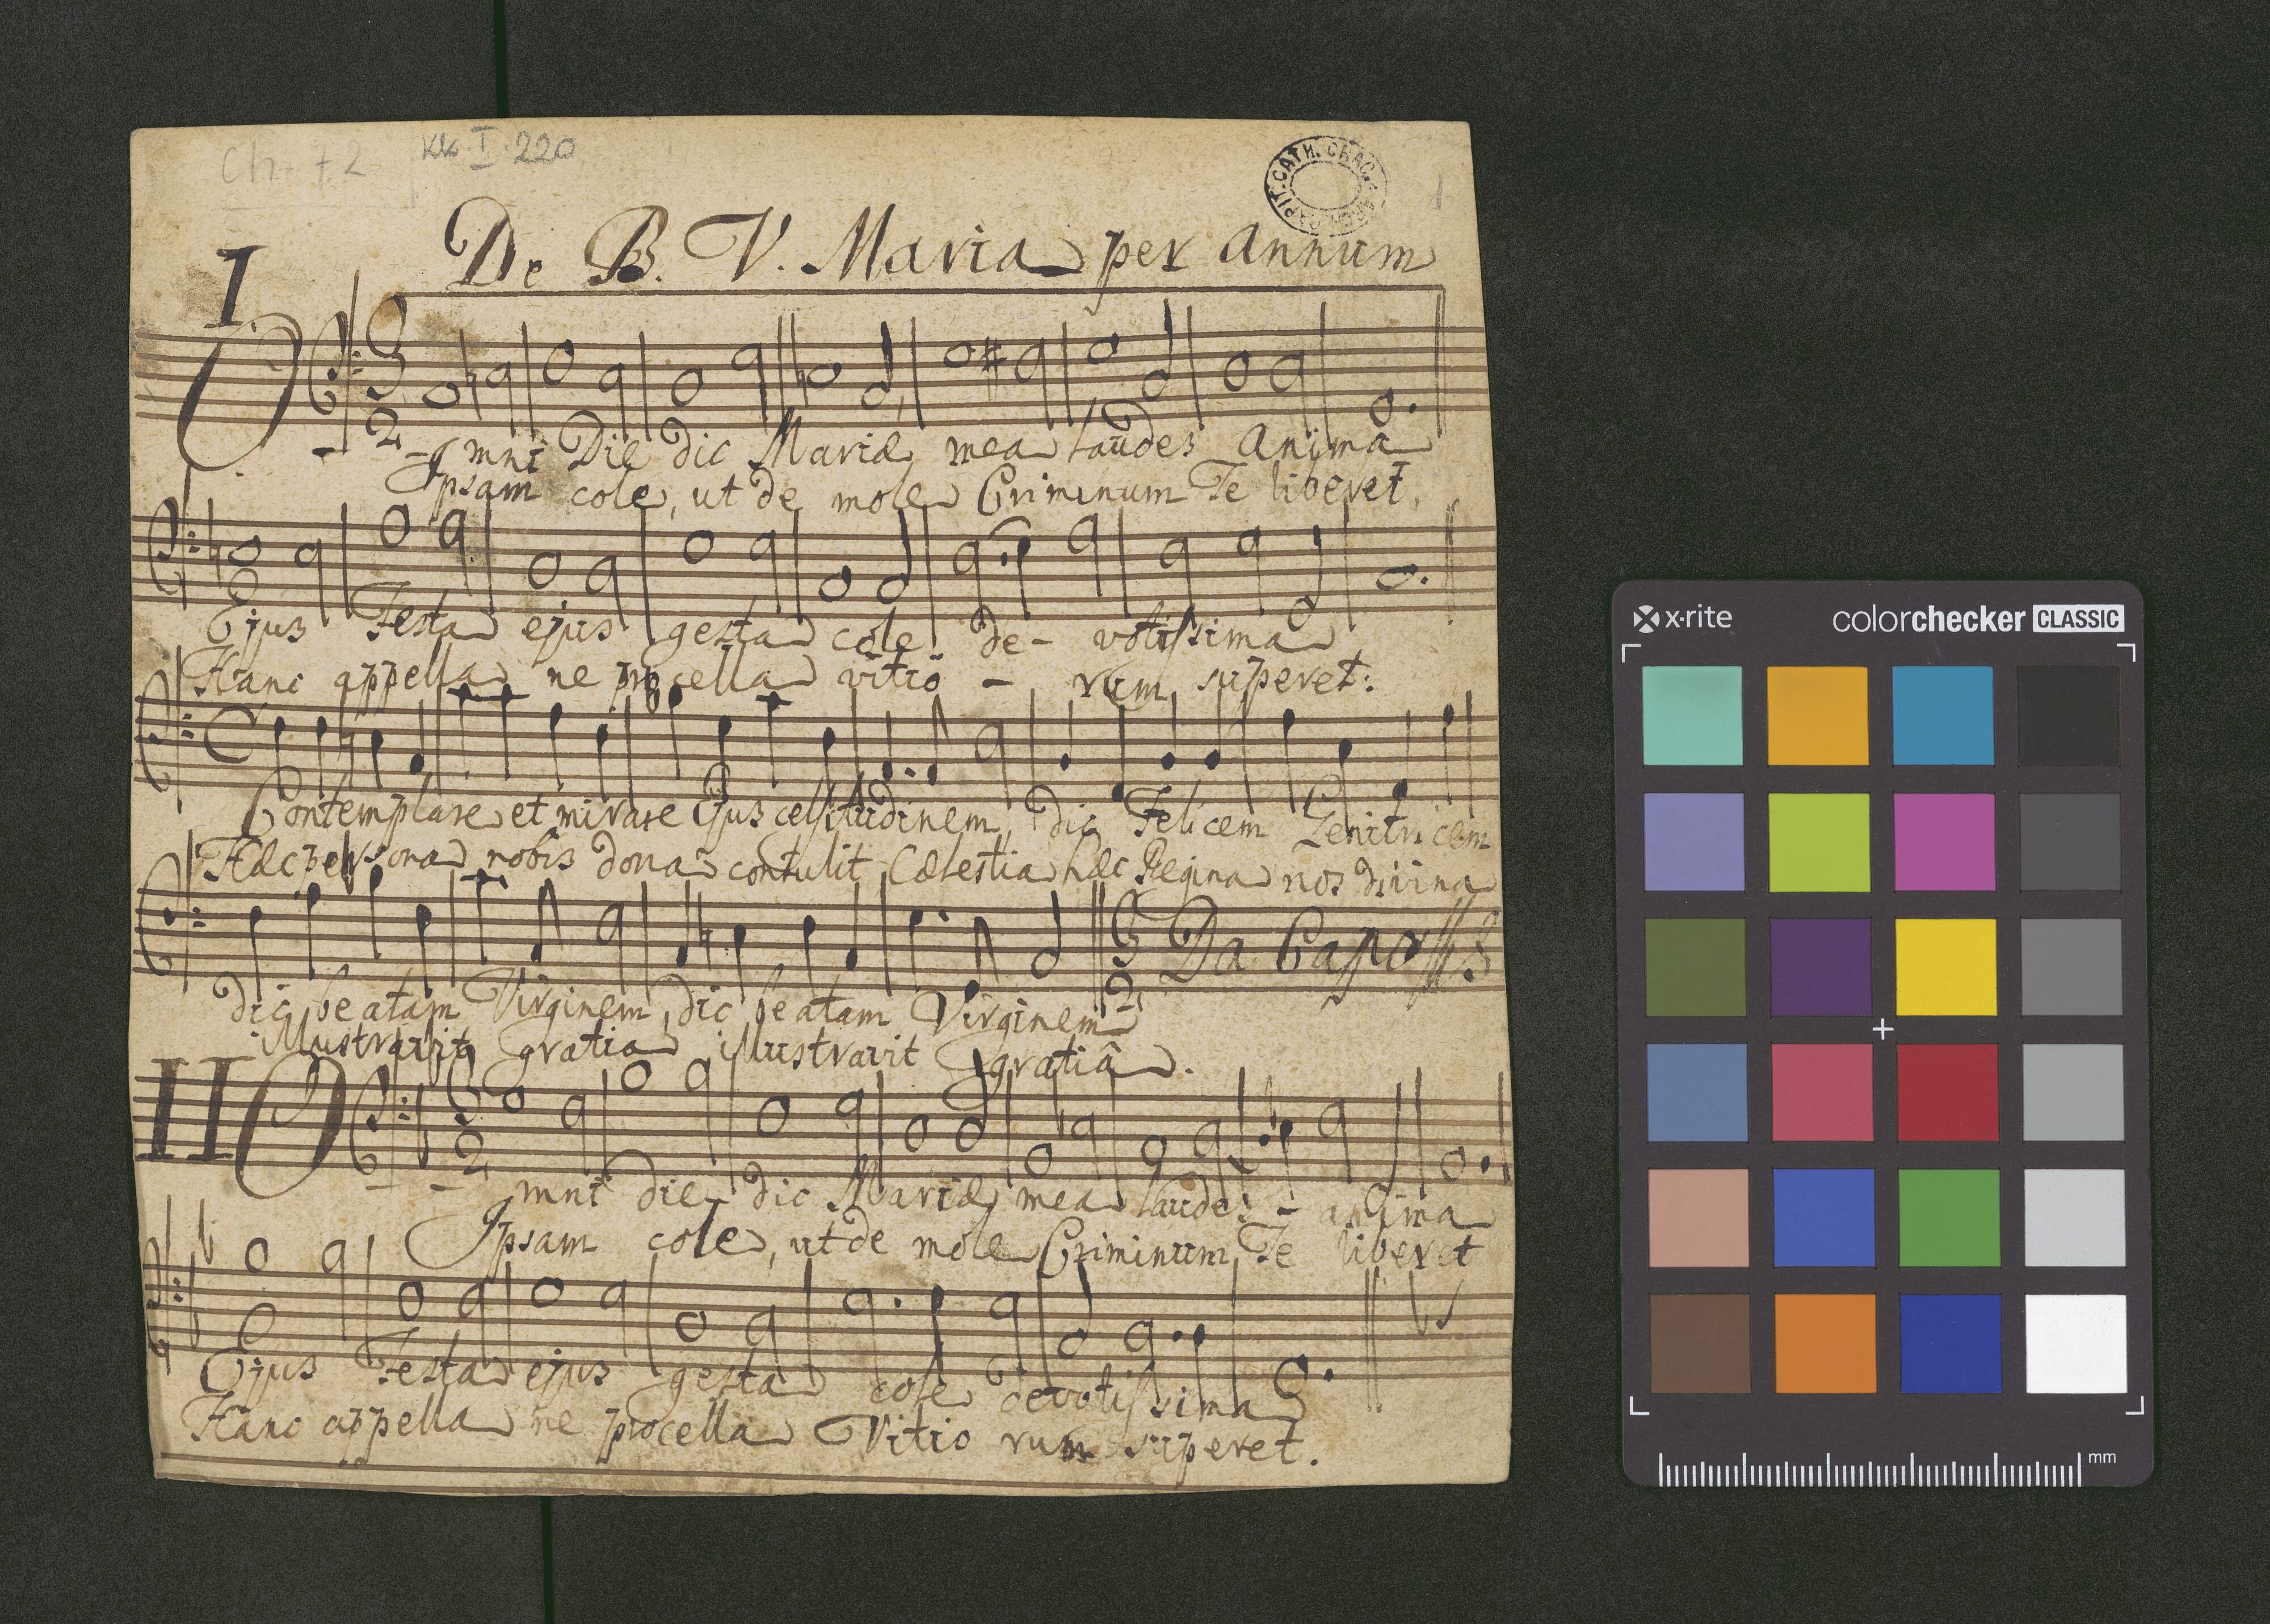 Ch. 72 KK. I. 220
CAPIT. CATH. CRAC.
1
I De B. V. Maria per Annum
3
2
Omni Die dic Mariæ mea laudes anima
Ipsam cole, ut de mole Criminum Te liberet.
Ejus Festa ejus gesta cole de- votissima
Hanc appella ne procella vitio - rum superet:
C
Contemplare et mirare Ejus celsitudinem, dic Felicem Genitricem
Hæc persona nobis dona contulit Cælestia hæc Regina nos divina
3
2
Da Capo
dic beatam Virginem dic beatam Virginem
illustravit gratia illustravit gratiâ.
II
3
2
Omni die dic Mariæ mea laudes - anima
Ipsam cole, ut de mole Criminum Te liberet
Ejus Festa ejus gesta cole devotissima
Hanc appella ne procella Vitio rum superet.
x-rite colorchecker CLASSIC
mm